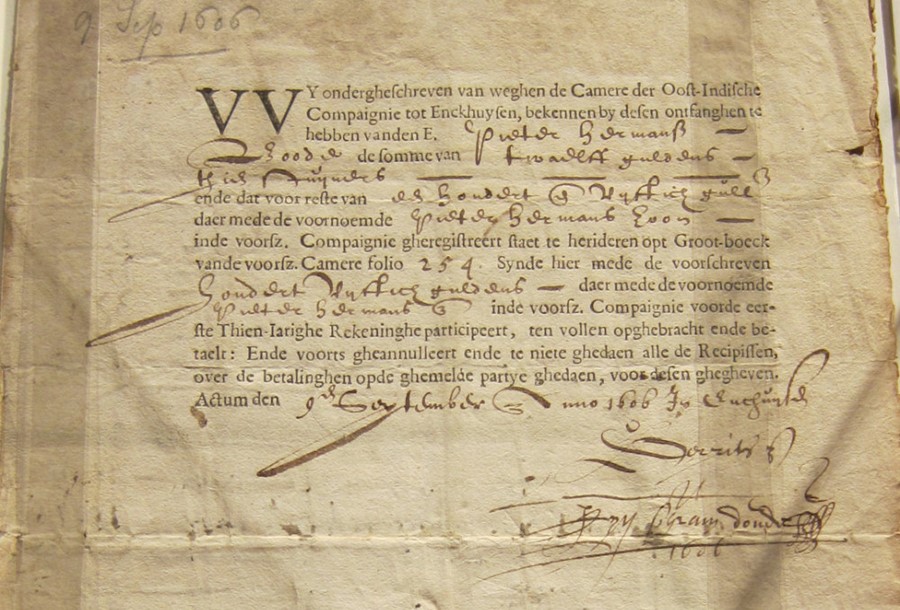 9 Sep 1606
VVY ondergheschreven van weghen de Camere der Oost-Indische
Compaignie tot Enckhuysen, bekennen by desen ontfanghen te
hebben vanden E. Pieter hermansz
de somme van twaelff guldens
ende dat voor reste van hondert gull
daer mede de voornoemde Pieter hermans
inde voorsz. Compaignie gheregistreert staet te herideren opt Groot-boeck
vande voorsz. Camere folio 254. Synde hier mede de voorschreven
hondert guldens daer mede de voornoemde
Pieter hermans inde voorsz. Compaignie voorde eer-
ste Thien-Iarighe Rekeninghe participeert, ten vollen opghebracht ende be-
taelt: Ende voorts gheannulleert ende te niete ghedaen alle de Recipissen,
over de betalinghen opde ghemelde partye ghedaen, voor desen ghegheven.
Actum den 9en September Anno 1606 In
Gerrits
1606